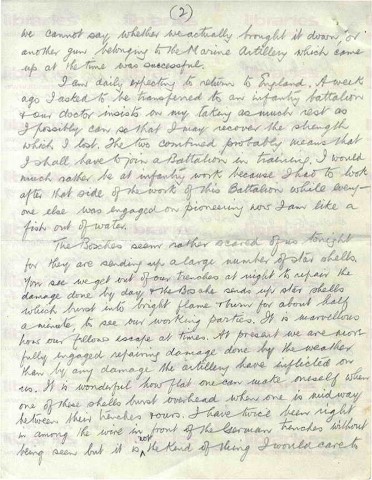 (2)
we cannot say whether we actually brought it down or
another gun belonging to the Marine Artillery which came
up at the time was successful.
I am daily expecting to return to England. A week
ago I asked to be transferred to an infantry battalion
& our doctor insists on my taking as much rest as
I possibly can so that I may recover the strength
which I lost. The two combined probably means that
I shall have to join a Battalion in training. I would
much rather be at infantry work because I had to look
after that side of the work of this Battalion while every-
one else was engaged on pioneering now I am like a
fish out of water.
The Bosches seem rather scared of us tonight
for they are sending up a large number of star shells.
You see we get out of our trenches at night to repair the
damage done by day, & the Bosche sends up star shells
which burst into bright flame & burn for about half
a minute, to see our working parties. It is marvellous
how our fellows escape at times. At present we are more
fully engaged repairing damage done by the weather
than by any damage the artillery have inflicted on
us. It is wonderful how flat one can make oneself when
one of these shells burst overhead when one is midway
between their trenches & ours. I have twice been right
in among the wire in front of the German trenches without
being seen but it is not the kind of thing I would care to